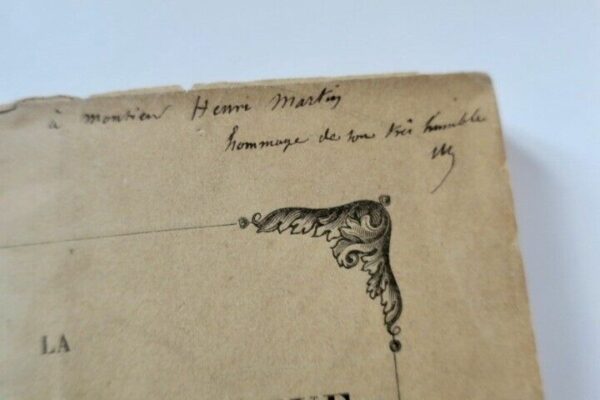 à monsieur Henri Martin
hommage de son très humble
LA